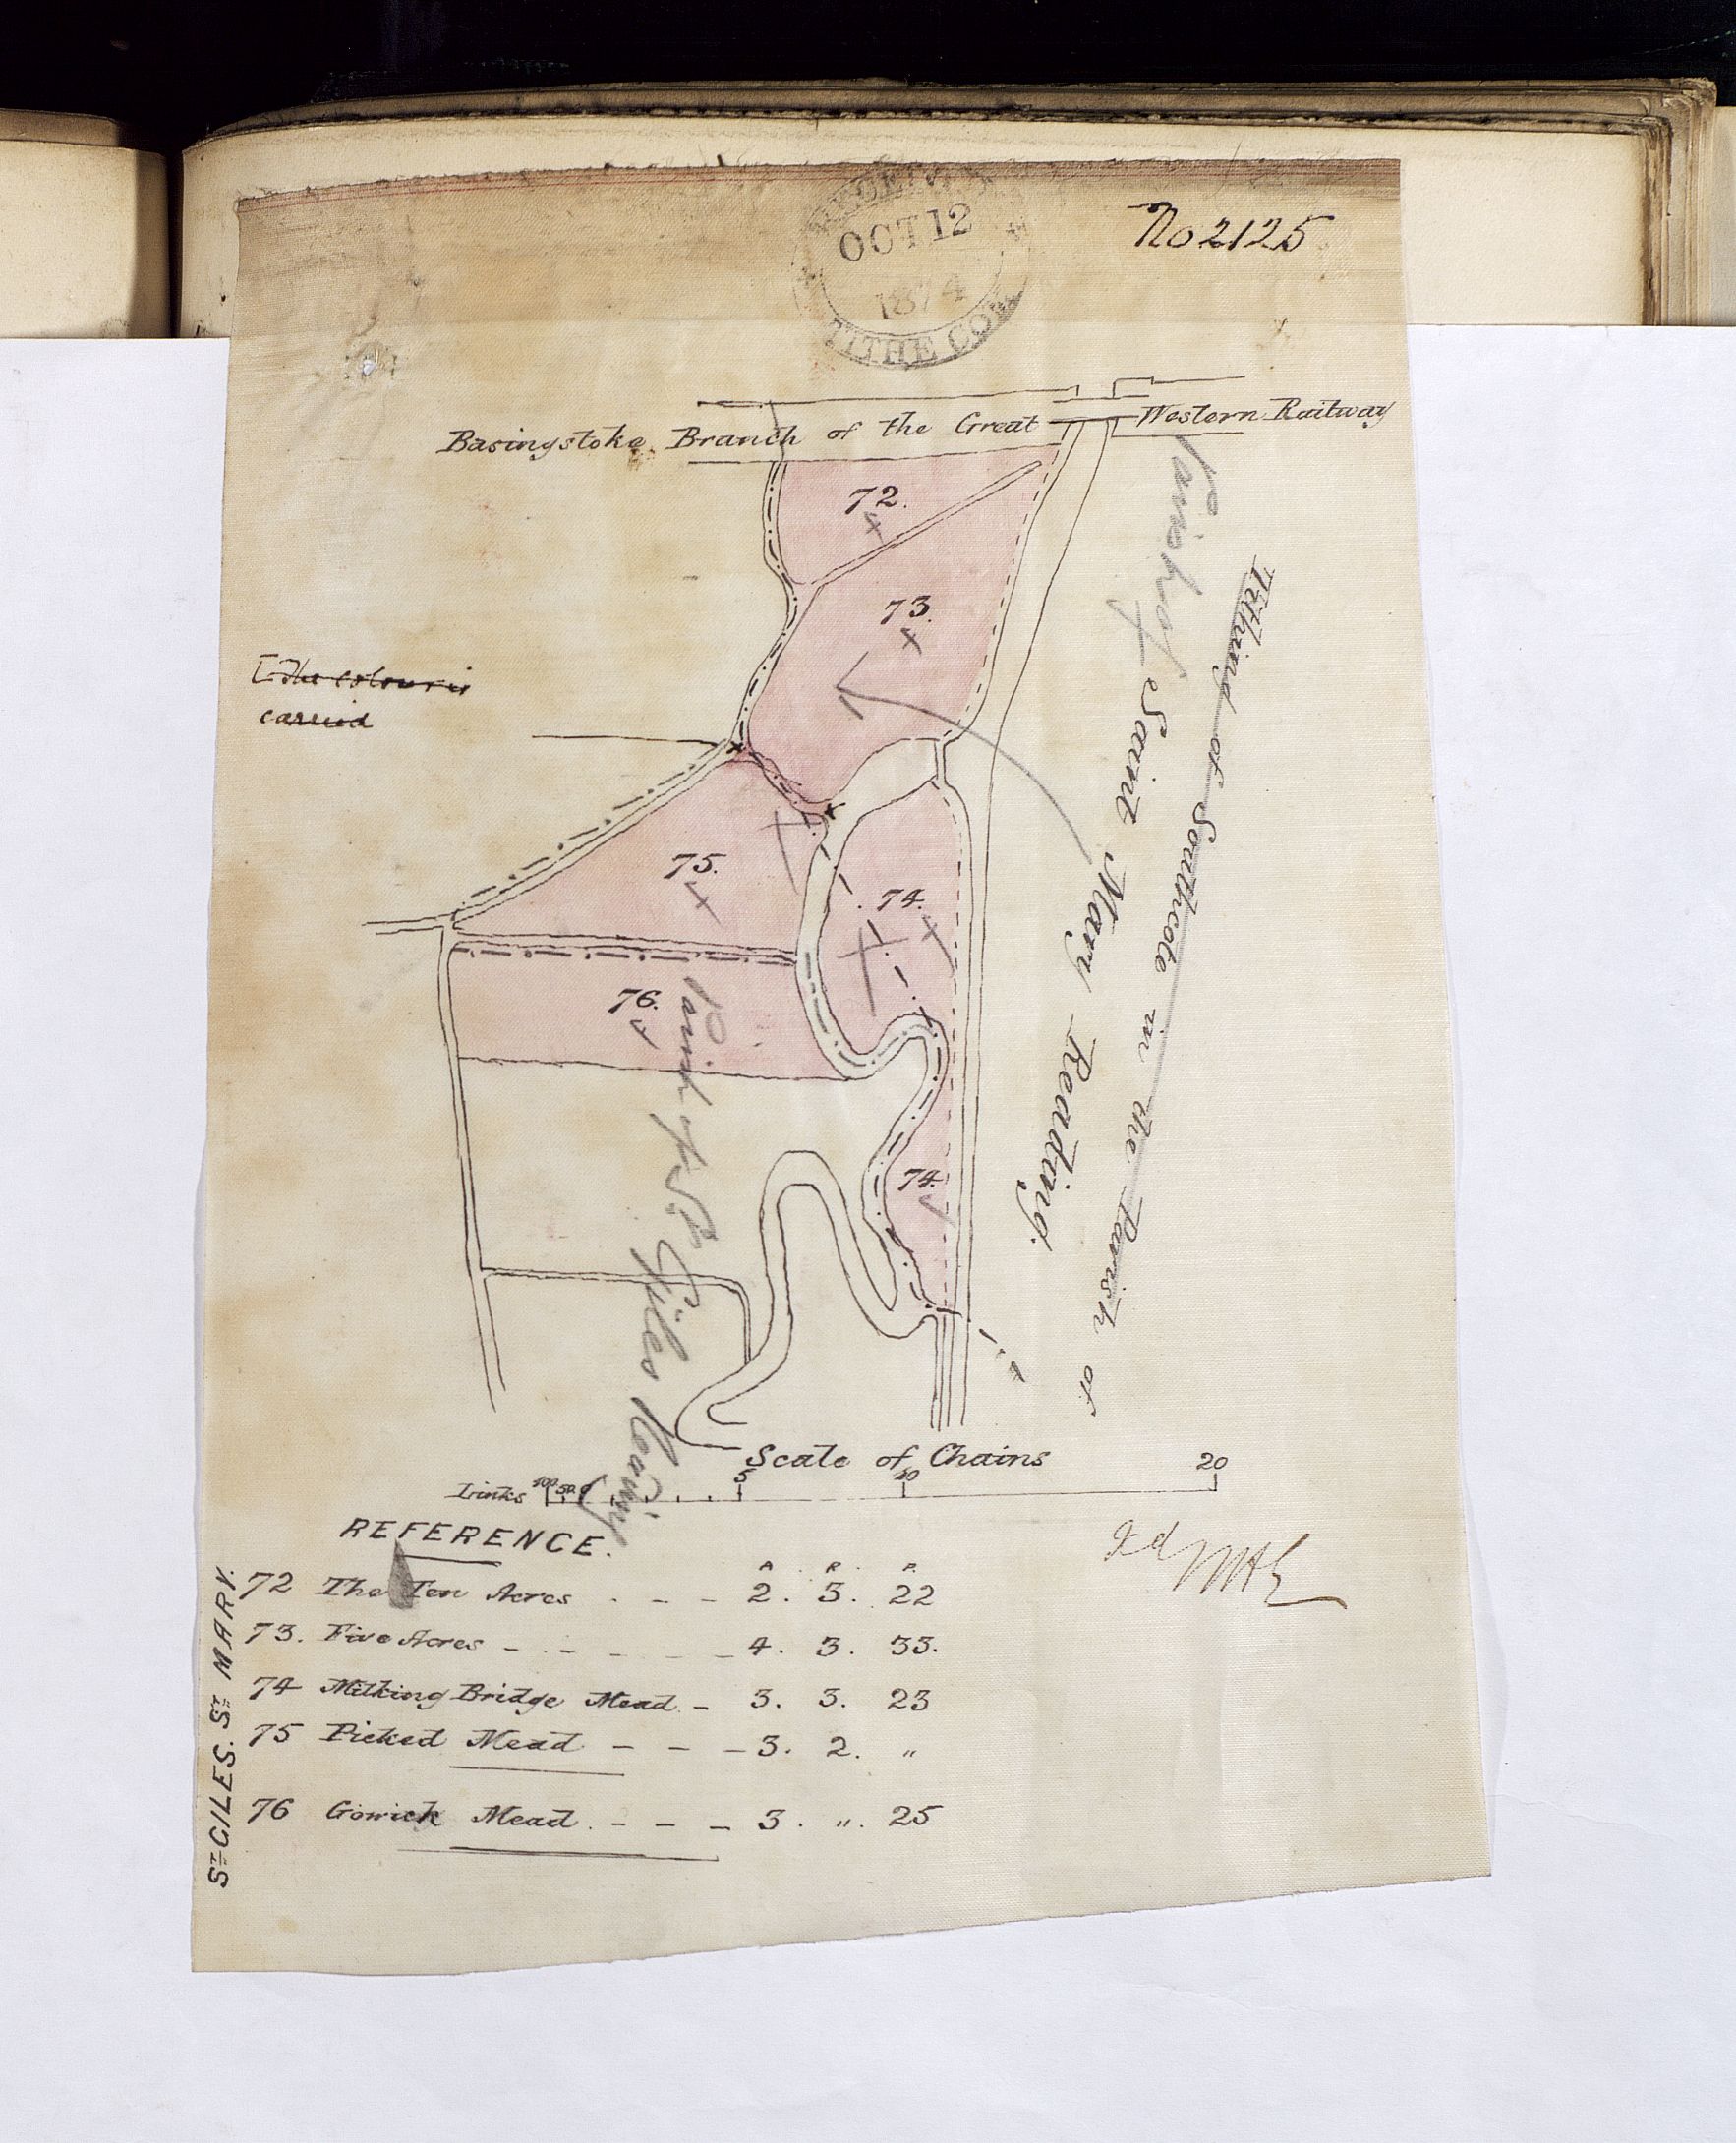 OCT 12
1874
TITHE COM
No 2125
Basingstoke Branch of the Great Western Railway
72.
73.
The colour is
carried
75.
74.
76.
74.
Parish of Saint Mary Reading.
Tithing of Southcote in the Parish of
Parish of St. Giles Reading
Scale of Chains
Links 100 50 0 5 10 20
REFERENCE.
A. R. P.
72 The Ten Acres - - - 2. 3. 22
73. Five Acres - - - - 4. 3. 33.
74 Milking Bridge Mead - 3. 3. 23
75 Picked Mead - - - 3. 2. "
76 Gowick Mead. - - - 3. ". 25
ST GILES. ST MARY.